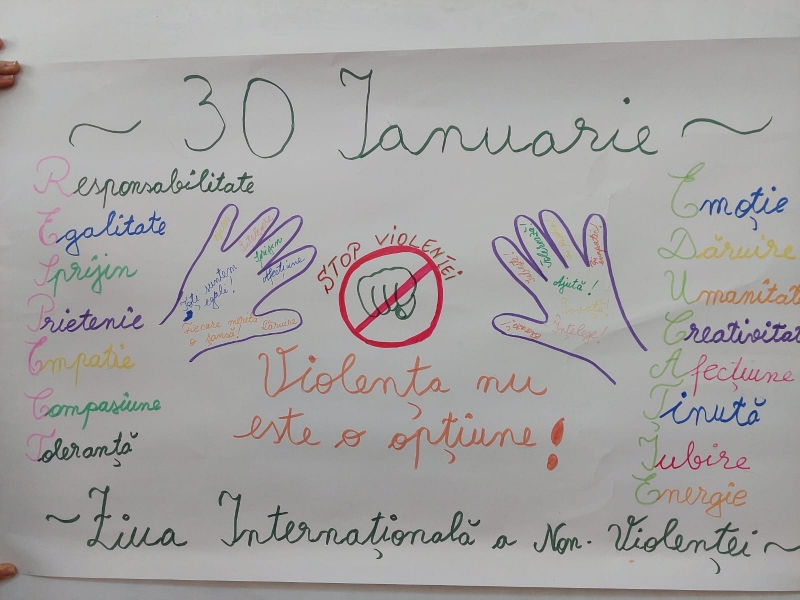 ~ 30 Ianuarie ~
Responsabilitate
Egalitate
Sprijin
Prietenie
Empatie
Compasiune
Toleranță
sprijin
afecțiune
Toți suntem
egali!
Fiecare merită
o șansă!
Dăruire
STOP VIOLENȚEI
Violența nu
este o opțiune!
Ajută!
Înțelege!
Emoție
Dăruire
Umanitate
Creativitat
Afecțiune
Ținută
Iubire
Energie
~ Ziua Internațională a Non-Violenței ~